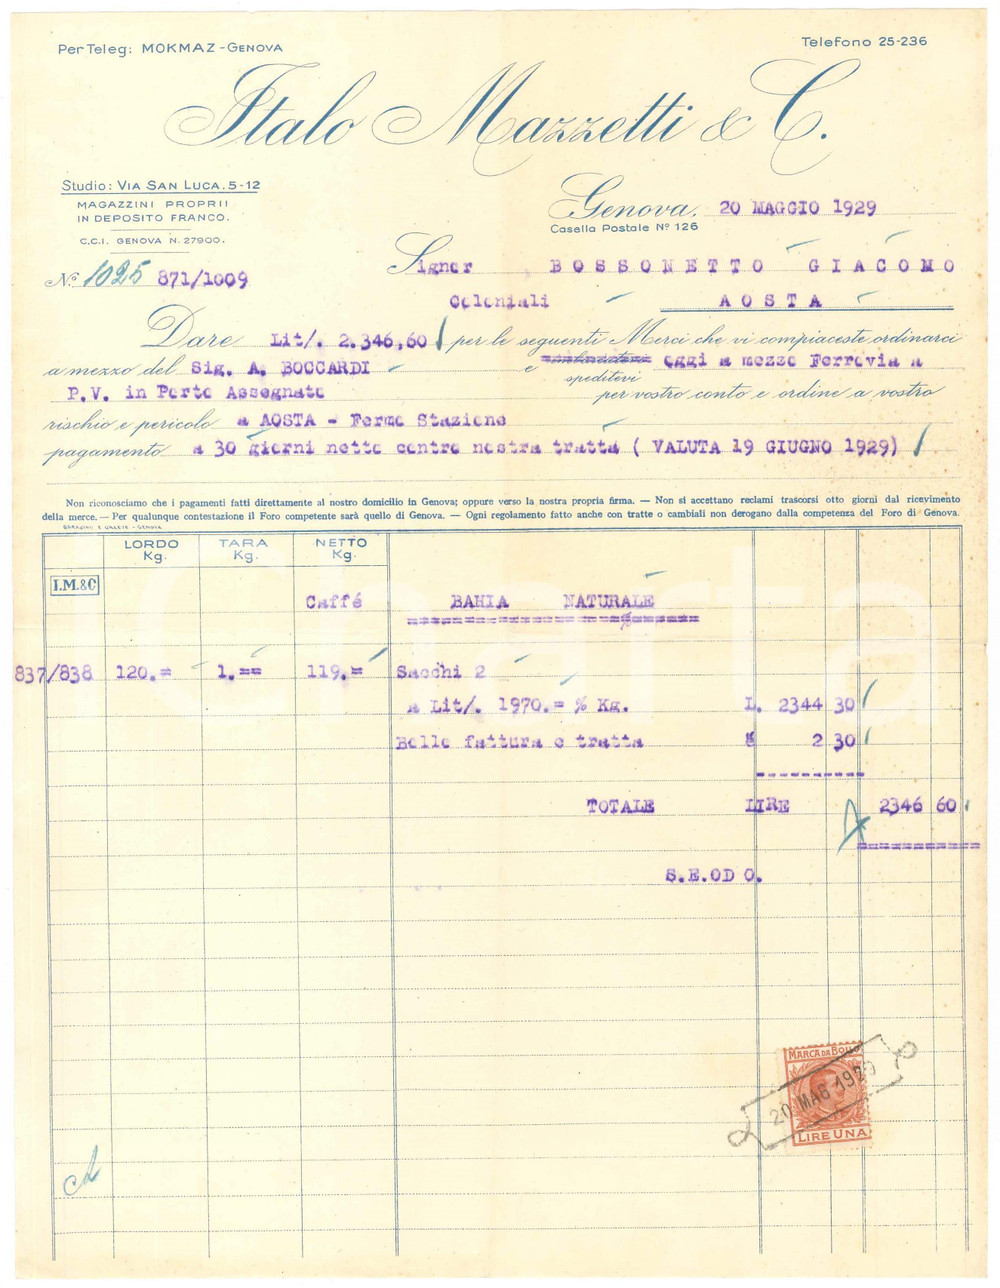 Per Teleg: MOKMAZ - GENOVA
Telefono 25-236
Italo Mazzetti & C.
Studio: VIA SAN LUCA. 5-12
MAGAZZINI PROPRII
IN DEPOSITO FRANCO.
C.C.I. GENOVA N. 27900.
Genova, 20 MAGGIO 1929
Casella Postale Nº 126
Nº 1025 871/1009
Signor BOSSONETTO GIACOMO
Coloniali AOSTA
Dare Lit/. 2.346,60 per le seguenti Merci che vi compiaceste ordinarci
a mezzo del Sig. A. BOCCARDI e speditevi oggi a mezzo Ferrovia a
P.V. in Porto Assegnato per vostro conto e ordine a vostro
rischio e pericolo a AOSTA - Fermo Stazione
pagamento a 30 giorni netto contro nostra tratta ( VALUTA 19 GIUGNO 1929)
Non riconosciamo che i pagamenti fatti direttamente al nostro domicilio in Genova; oppure verso la nostra propria firma. — Non si accettano reclami trascorsi otto giorni dal ricevimento
della merce. — Per qualunque contestazione il Foro competente sarà quello di Genova. — Ogni regolamento fatto anche con tratte o cambiali non derogano dalla competenza del Foro di Genova.
LORDO Kg. TARA Kg. NETTO Kg.
I.M.&C
Caffé BAHIA NATURALE
837/838 120.= 1.== 119.= Sacchi 2
a Lit/. 1970.= % Kg. L. 2344 30
Bollo fattura e tratta " 2 30
TOTALE LIRE 2346 60
S.E.OD O.
MARCA DA BOLLO
20 MAG 1929
LIRE UNA